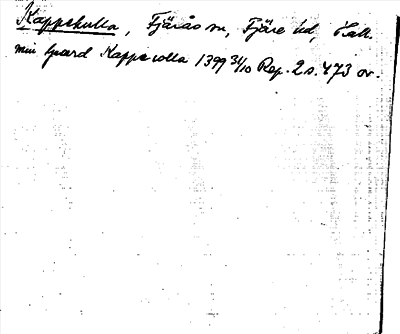 Kappekulla, Fjärås sn, Fjäre hd, Hall.
min gaard Kappecolla 1399 31/10 Rep. 2 s. 473 or.